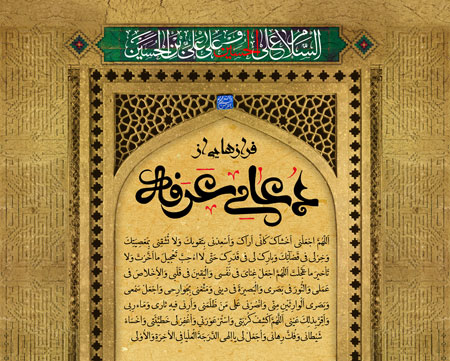 السلام علی الحسین و علی علی بن الحسین
فرازهایی از
دعای عرفه
اَللّهُمَّ اجْعَلْنى اَخْشاكَ كَاَنّى اَراكَ وَاَسْعِدْنى بِتَقويكَ وَلا تُشْقِنى بِمَعْصِيَتِكَ
وَخِرْلى فى قَضآئِكَ وَبارِكْ لى فى قَدَرِكَ حَتّى لا اُحِبَّ تَعْجيلَ ما اَخَّرْتَ وَلا
تَاْخيرَ ما عَجَّلْتَ اَللّهُمَّ اجْعَلْ غِناىَ فى نَفْسى وَالْيَقينَ فى قَلْبى وَالاِخْلاصَ فى
عَمَلى وَالنُّورَ فى بَصَرى وَالْبَصيرَةَ فى دينى وَمَتِّعْنى بِجَوارِحى وَاجْعَلْ سَمْعى
وَبَصَرى اَلْوارِثَيْنِ مِنّى وَانْصُرْنى عَلى مَنْ ظَلَمَنى وَاَرِنى فيهِ ثارى وَمَآرِبى
وَاَقِرَّ بِذلِكَ عَيْنى اَللّهُمَّ اكْشِفْ كُرْبَتى وَاسْتُرْ عَوْرَتى وَاغْفِرْ لى خَطيئَتى وَاخْسَاءْ
شَيْطانى وَفُكَّ رِهانى وَاجْعَلْ لى يا اِلهى الدَّرَجَةَ الْعُلْيا فِى الاخِرَةِ وَالاُولى